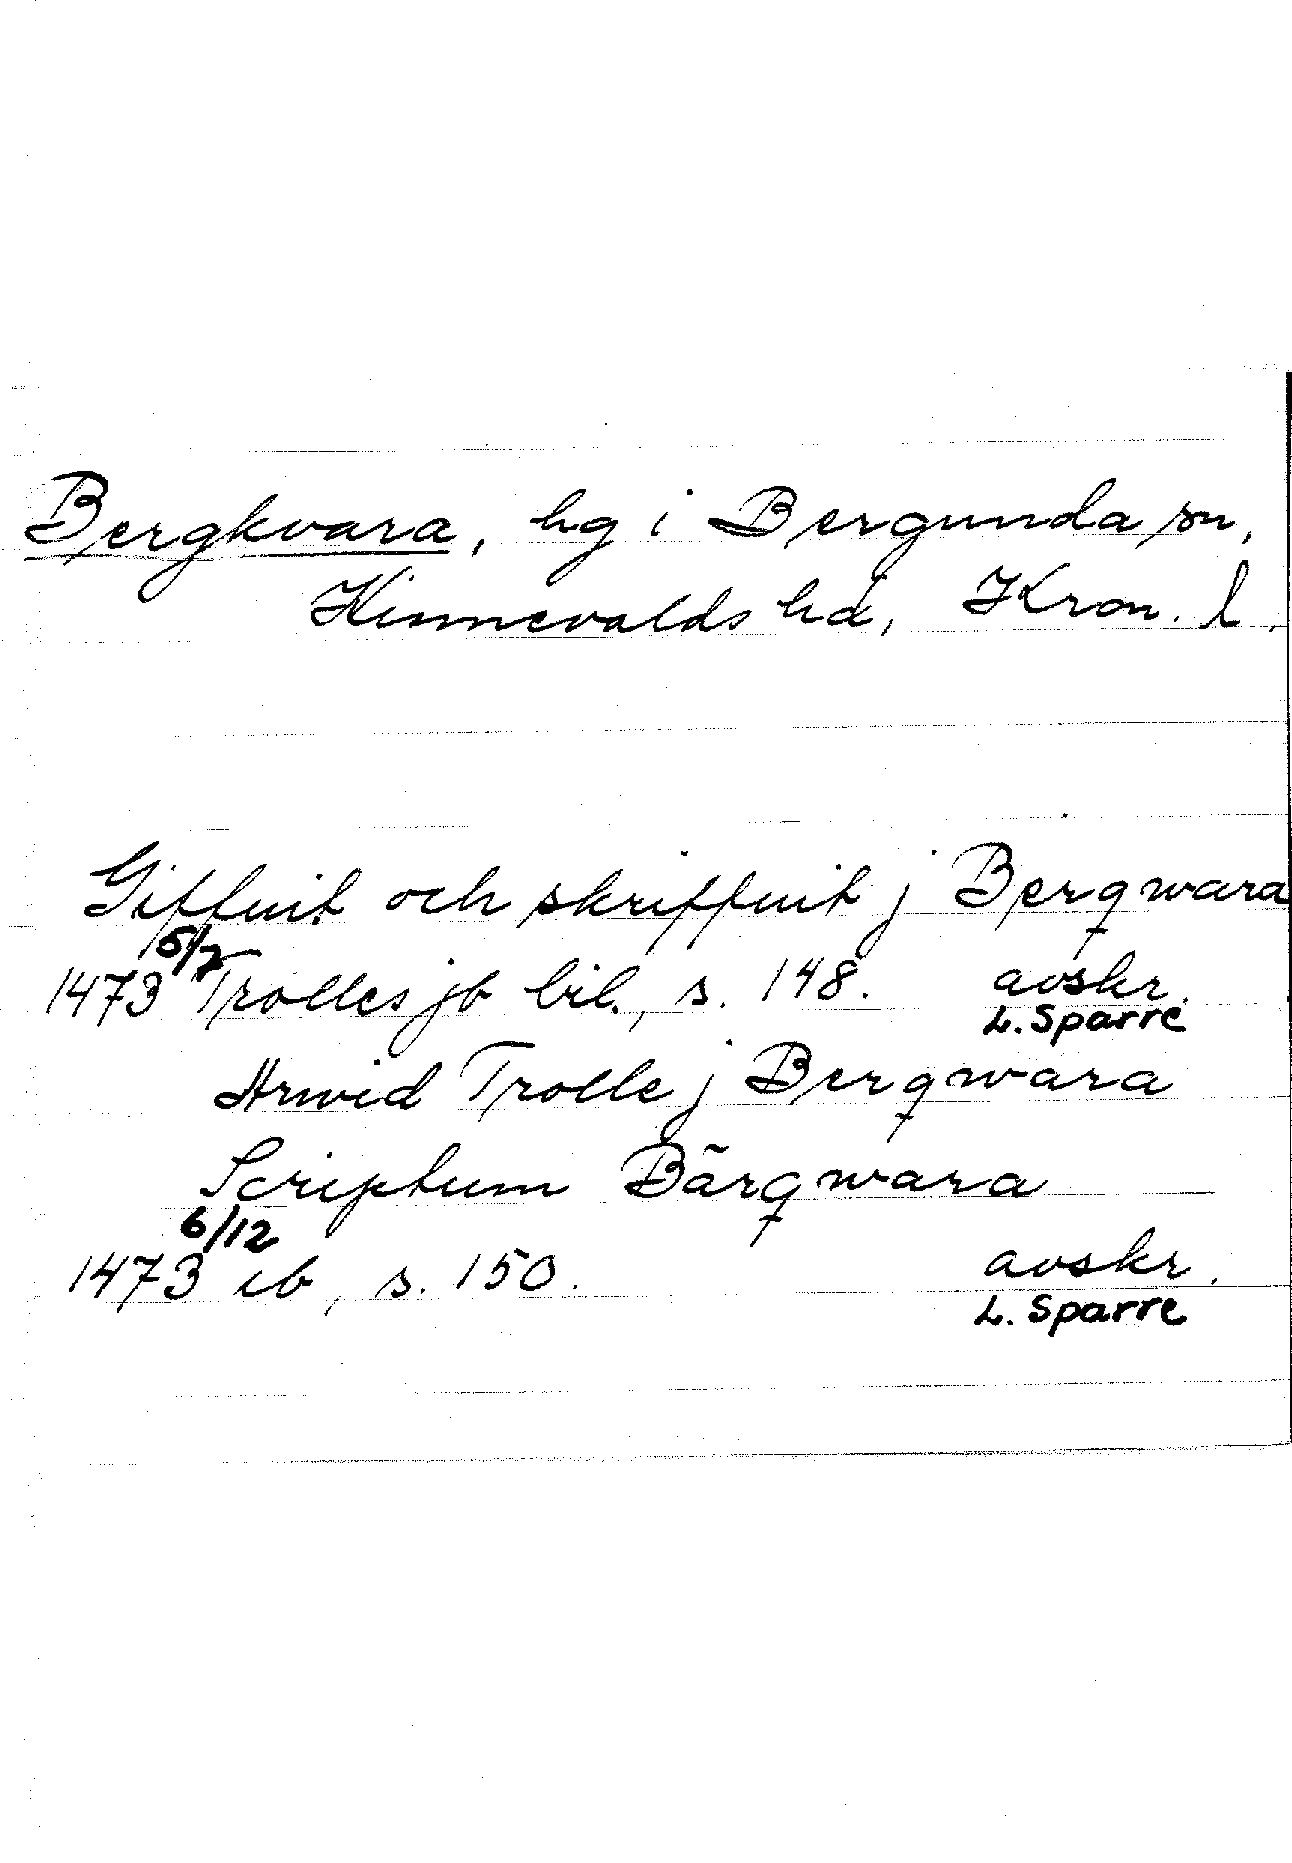 Bergkvara, hg i Bergunda sn,
Kinnevalds hd, Kron. l.
Giffuit och skriffuit j Bergwara
5/7
1473 Trolles jb bil., s. 148. avskr.
L. Sparre
Arwid Trolle j Berqwara
Scriptum Bärqwara
6/12
1473 ib, s. 150. avskr.
L. Sparre